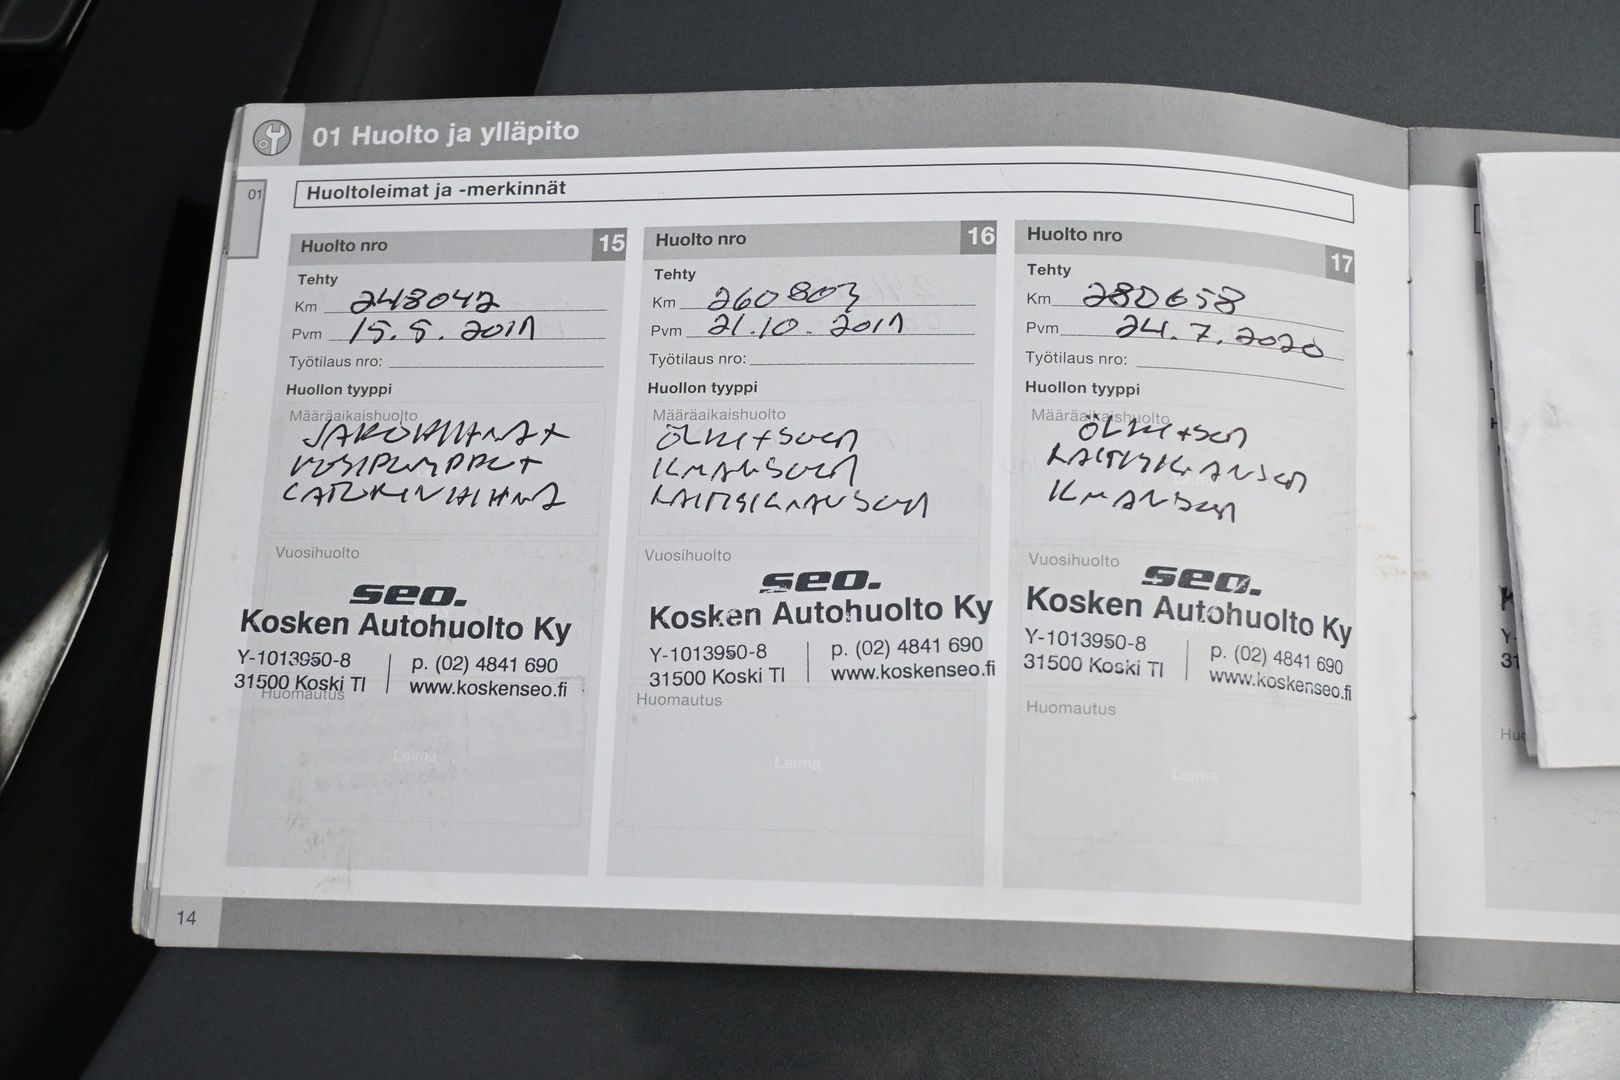 01 Huolto ja ylläpito
01
Huoltoleimat ja -merkinnät
Huolto nro 15
Tehty
Km 248042
Pvm 15.5.2019
Työtilaus nro:
Huollon tyyppi
Määräaikaishuolto
JAKOHIHNA+
VESIPUMPPU+
LATURINHIHNA
Vuosihuolto
seo.
Kosken Autohuolto Ky
Y-1013950-8 p. (02) 4841 690
31500 Koski Tl www.koskenseo.fi
Huomautus
Leima
Huolto nro 16
Tehty
Km 260803
Pvm 21.10.2019
Työtilaus nro:
Huollon tyyppi
Määräaikaishuolto
ÖLJY+SUOD
ILMANSUOD
RAITISILMANSUOD
Vuosihuolto
seo.
Kosken Autohuolto Ky
Y-1013950-8 p. (02) 4841 690
31500 Koski Tl www.koskenseo.fi
Huomautus
Leima
Huolto nro 17
Tehty
Km 280658
Pvm 24.7.2020
Työtilaus nro:
Huollon tyyppi
Määräaikaishuolto
ÖLJY+SUOD
RAITISILMANSUOD
ILMANSUOD
Vuosihuolto
seo.
Kosken Autohuolto Ky
Y-1013950-8 p. (02) 4841 690
31500 Koski Tl www.koskenseo.fi
Huomautus
Leima
14